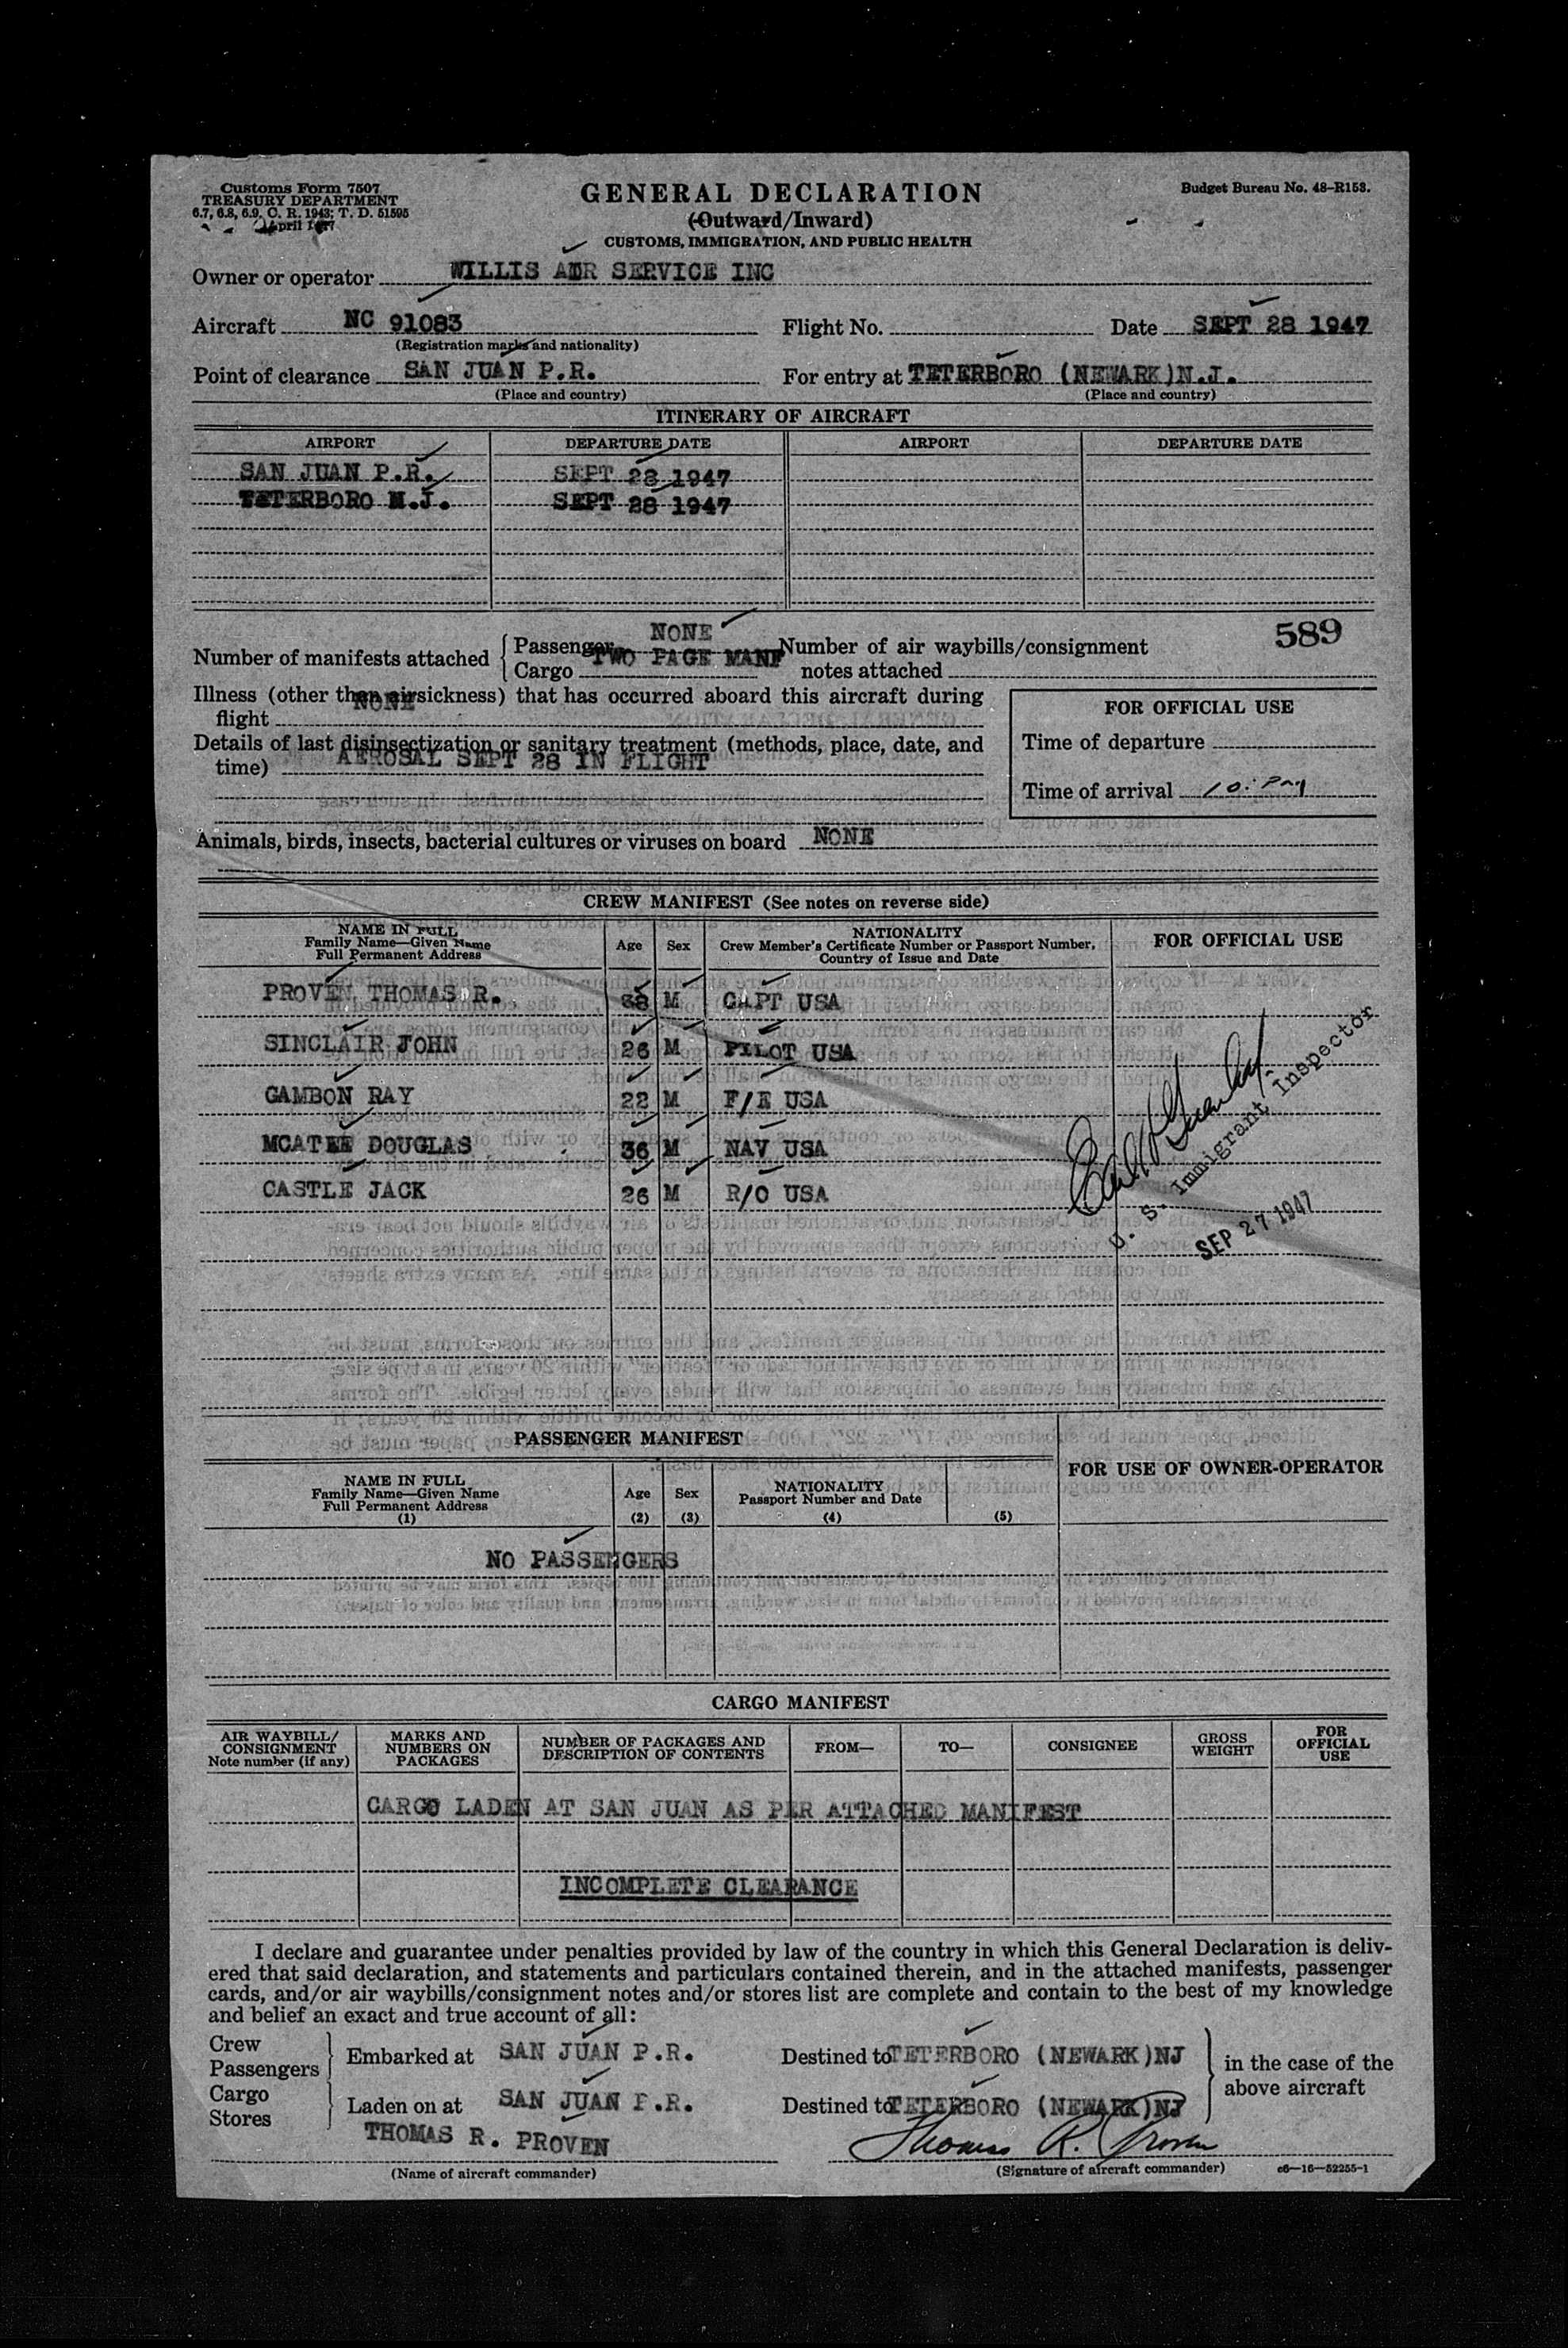 Customs Form 7507
TREASURY DEPARTMENT
6.7, 6.8, 6.9, C. R. 1943; T. D. 51595
April 1947
GENERAL DECLARATION
(Outward/Inward)
CUSTOMS, IMMIGRATION, AND PUBLIC HEALTH
Budget Bureau No. 48-R153.
Owner or operator WILLIS AIR SERVICE INC
Aircraft NC 91083 Flight No. Date SEPT 28 1947
(Registration marks and nationality)
Point of clearance SAN JUAN P.R. For entry at TETERBORO (NEWARK)N.J.
(Place and country) (Place and country)
ITINERARY OF AIRCRAFT
AIRPORT DEPARTURE DATE AIRPORT DEPARTURE DATE
SAN JUAN P.R. SEPT 28 1947
TETERBORO N.J. SEPT 28 1947
589
Number of manifests attached
Passenger NONE
Cargo TWO PAGE MANF
Number of air waybills/consignment
notes attached
Illness (other than airsickness) that has occurred aboard this aircraft during
flight NONE
Details of last disinsectization or sanitary treatment (methods, place, date, and
time) AEROSAL SEPT 28 IN FLIGHT
FOR OFFICIAL USE
Time of departure
Time of arrival 10:
Animals, birds, insects, bacterial cultures or viruses on board NONE
CREW MANIFEST (See notes on reverse side)
NAME IN FULL
Family Name—Given Name
Full Permanent Address
Age Sex
NATIONALITY
Crew Member's Certificate Number or Passport Number,
Country of Issue and Date
FOR OFFICIAL USE
PROVEN THOMAS R. 38 M CAPT USA
SINCLAIR JOHN 26 M PILOT USA
GAMBON RAY 22 M F/E USA
MCATEE DOUGLAS 36 M NAV USA
CASTLE JACK 26 M R/O USA
U. S. Immigrant Inspector
SEP 27 1947
PASSENGER MANIFEST
NAME IN FULL
Family Name—Given Name
Full Permanent Address
(1)
Age
(2)
Sex
(3)
NATIONALITY
Passport Number and Date
(4) (5)
FOR USE OF OWNER-OPERATOR
NO PASSENGERS
CARGO MANIFEST
AIR WAYBILL/
CONSIGNMENT
Note number (if any)
MARKS AND
NUMBERS ON
PACKAGES
NUMBER OF PACKAGES AND
DESCRIPTION OF CONTENTS
FROM— TO— CONSIGNEE
GROSS
WEIGHT
FOR
OFFICIAL
USE
CARGO LADEN AT SAN JUAN AS PER ATTACHED MANIFEST
INCOMPLETE CLEARANCE
I declare and guarantee under penalties provided by law of the country in which this General Declaration is deliv-
ered that said declaration, and statements and particulars contained therein, and in the attached manifests, passenger
cards, and/or air waybills/consignment notes and/or stores list are complete and contain to the best of my knowledge
and belief an exact and true account of all:
Crew
Passengers
Embarked at SAN JUAN P.R. Destined to TETERBORO (NEWARK)NJ
Cargo
Stores
Laden on at SAN JUAN P.R. Destined to TETERBORO (NEWARK)NJ
in the case of the
above aircraft
THOMAS R. PROVEN Thomas R. Proven
(Name of aircraft commander) (Signature of aircraft commander) c6—16—52255-1